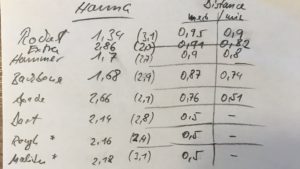 Hanna Distance
Rocket 1,34 (3,1) 0,95 0,9
Extra 2,86 0,91 0,82
Hammer 1,7 (2,7) 0,9 0,8
1,68 (2,9) 0,87 0,74
2,66 (2,7) 0,76 0,51
Dart 2,14 (2,8) 0,5 -
Rough * 2,16 (2,4) 0,5 -
2,18 (3,1) 0,5 -